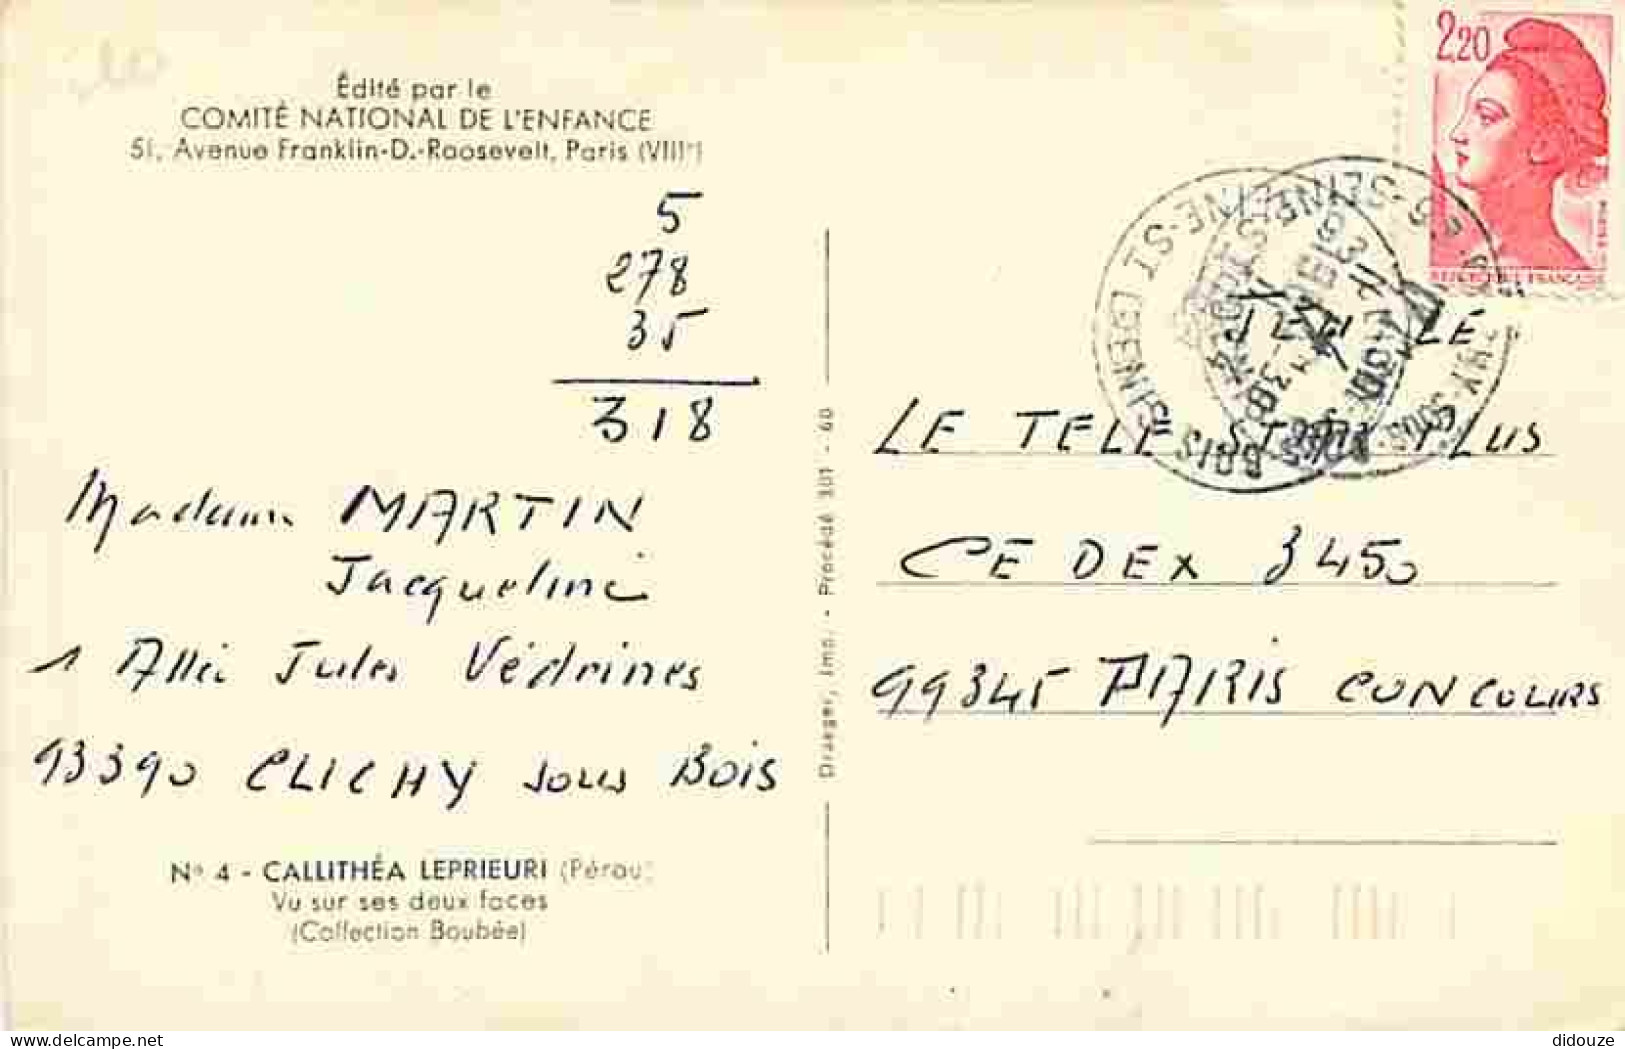 Édité par le
COMITÉ NATIONAL DE L'ENFANCE
51, Avenue Franklin-D.-Roosevelt, Paris (VIIIᵉ)
5
278
35
318
Madame MARTIN
Jacqueline
1 Allée Jules Védrines
93390 CLICHY sous BOIS
N° 4 - CALLITHÉA LEPRIEURI (Pérou)
Vu sur ses deux faces
(Collection Boubée)
Draeger, Imp. - Procédé 301 - 60
2,20
SEINE-ST DENIS
BOIS
JEU LE
LE TELE STAR PLUS
CEDEX 3450
99345 PARIS CONCOURS
didouze